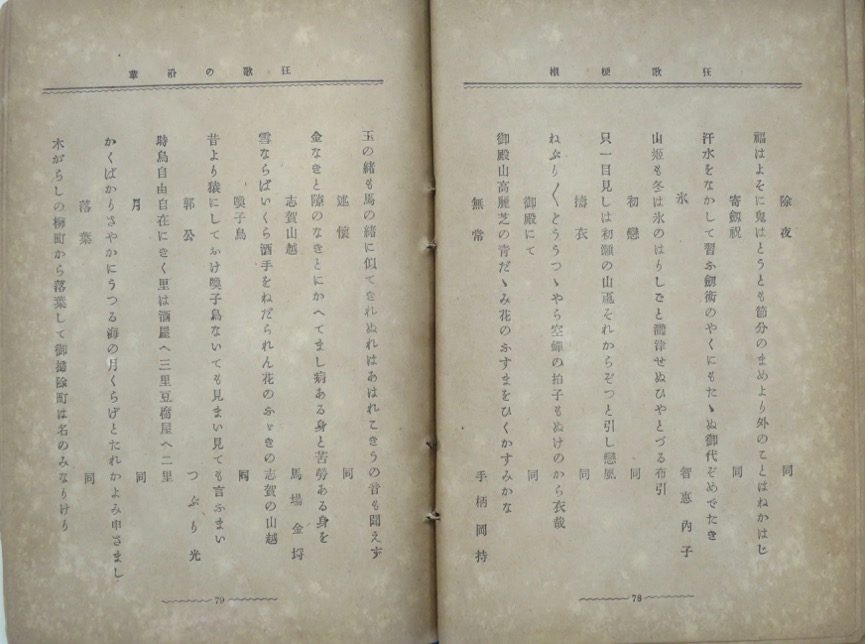 狂歌梗槪
除夜　同
福はよそに鬼はとうとも節分のまめより外のことはねかはじ
寄劔祝　同
汗水をなかして習ふ劔術のやくにもたゝぬ御代ぞめでたき
氷　智惠內子
山姬も冬は氷のはりしごと瀧津せぬひやとづる布引
初戀　同
只一目見しは初瀨の山颪それからぞつと引し戀風
擣衣　同
ねぶり〳〵とうつゝやら空蟬の拍子もぬけのから衣哉
御殿にて　同
御殿山高麗芝の靑だゝみ花のふすまをひくかすみかな
無常　手柄岡持
78
狂歌の沿革
玉の緒も馬の緖に似てきれぬれはあはれこきうの音も聞えず
述懷　同
金なきと隙のなきとにかへてまし病ある身と苦勞ある身を
志賀山越　馬場金埒
雪ならばいくら酒手をねだられん花のふゞきの志賀の山越
喚子鳥　同
昔より猿にしておけ喚子鳥ないても見まい見ても言ふまい
郭公　つぶり光
時鳥自由自在にきく里は酒屋へ三里豆腐屋へ二里
月　同
かくばかりさやかにうつる海の月くらげとたれかよみ申さまし
落葉　同
木がらしの柳町から落葉して御掃除町は名のみなりけり
79